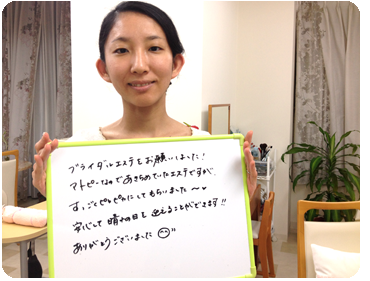 ブライダルエステをお願いしました!
アトピーなのであきらめていたエステですが、
すっごくピカピカにしてもらいました〜♥
安心して晴れの日を迎えることができます!!
ありがとうございました